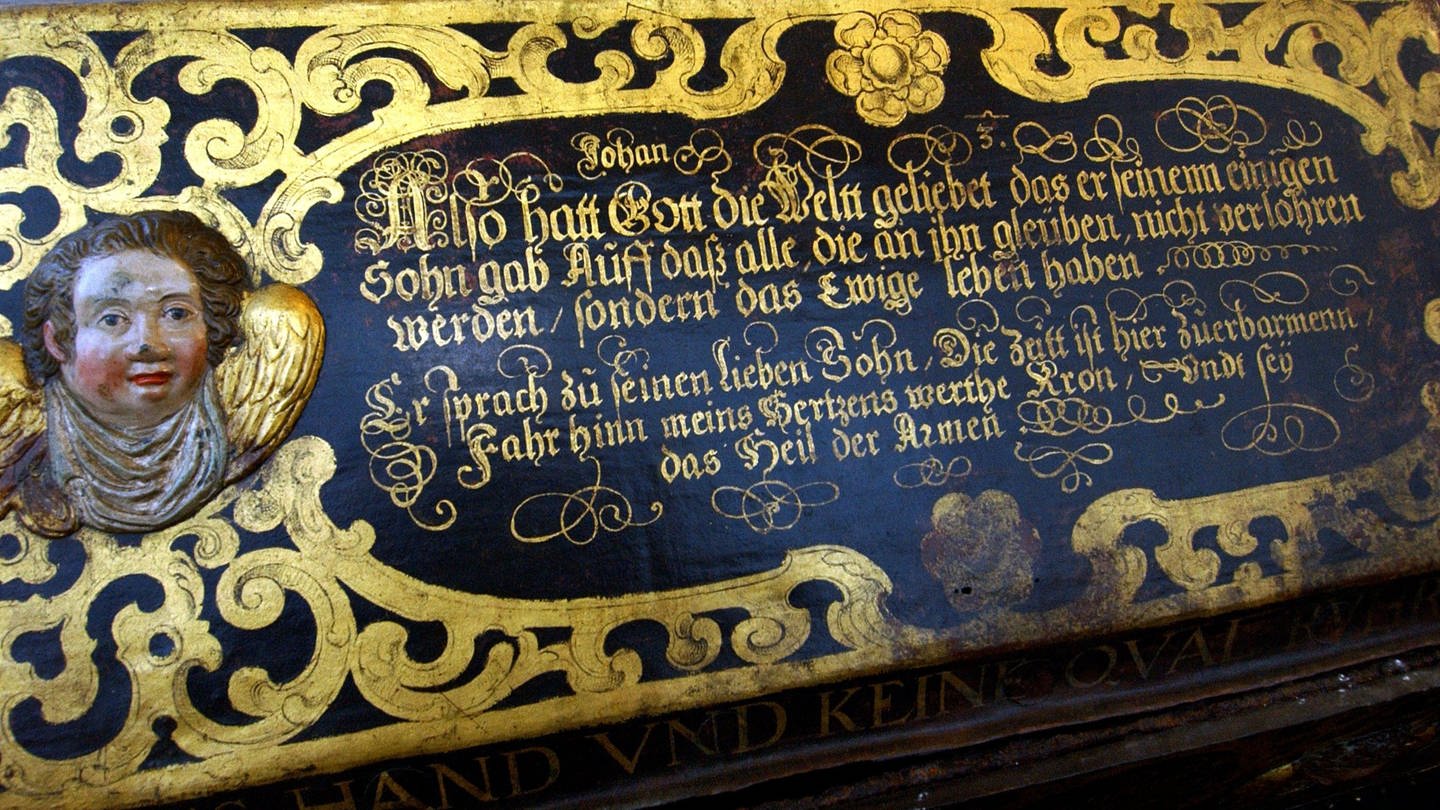 Johan 3.
Also hatt Gott die Weltt geliebet das er seinenn einigen
Sohn gab Auff daß alle, die an ihn gleuben, nicht verlohren
werden / sondern das Ewige leben haben
Er sprach zu seinen lieben Sohn, Die zeitt ist hier zuerbarmenn /
Fahr hinn meins Hertzens werthe Kron / Vndt sey
das Heil der Armen
HAND VND KEINE QVAL